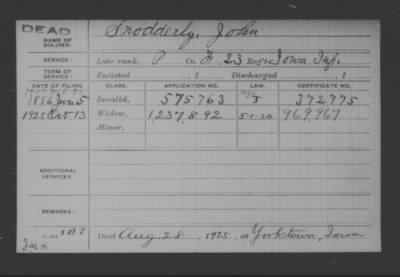 DEAD
NAME OF SOLDIER: Snodderly, John
SERVICE: Late rank, P Co. H, 23 Reg't Iowa Inf.
TERM OF SERVICE: Enlisted , 1 Discharged , 1
DATE OF FILING. CLASS. APPLICATION NO. LAW. CERTIFICATE NO.
1886 Jun 5 Invalid, 575763 372775
1925 Oct 13 Widow, 1,237,892 5-1-20 969,967
Minor,
ADDITIONAL SERVICES:
REMARKS:
Died Aug. 28, 1925, at Yorktown, Iowa